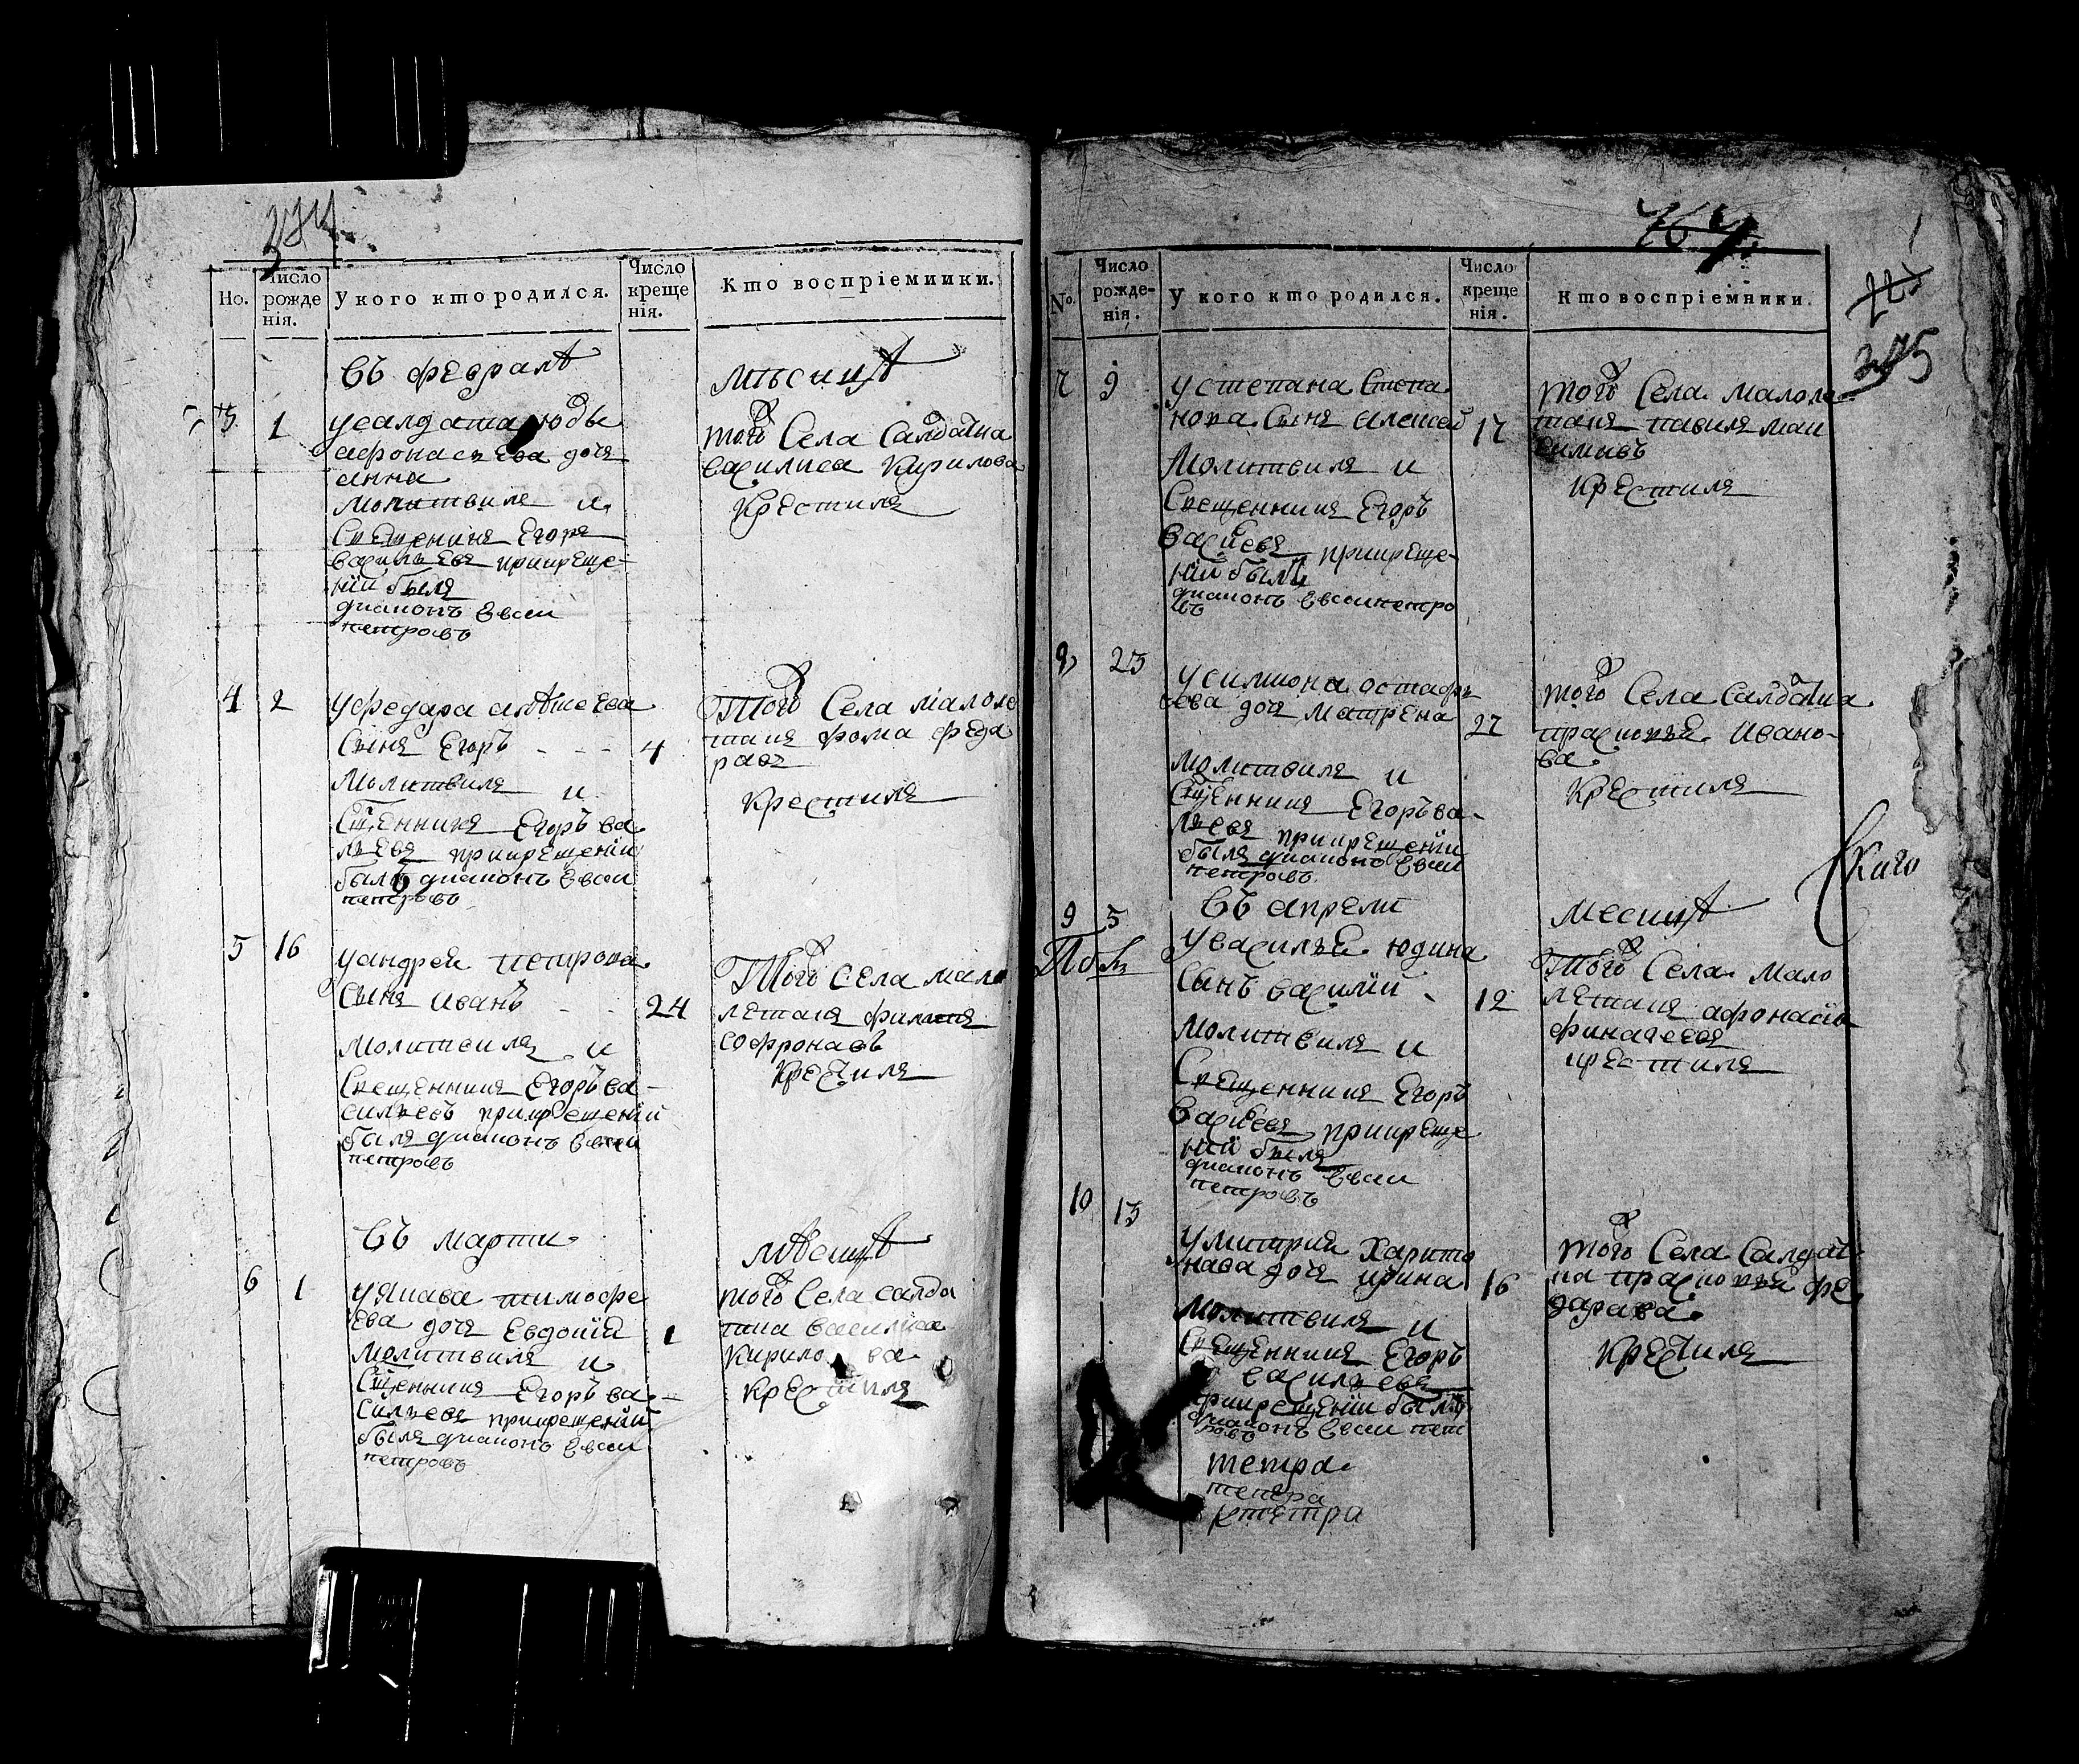 Но.
Число рожденія.
У кого кто родился.
Число крещенія.
Кто воспріемники.
Въ февралѣ
мѣсицѣ
3
1
Анна
молитвиля и
Священикя Егоря
Васильевя прикреще-
нїи быля
диаконъ Евсеи
петровъ
того Села Салдатка
василиса Кирилова
Крестиля
4
2
У федара алѣксеева
Сыня Егоръ
4
Молитвиля и
Сщенникя Егоръ ва
льевя прикрещенїи
былъ диаконъ Евсеи
петровъ
того Села малоле
таня фома феда
равя
Крестиля
5
16
У андрея петрова
Сыня иванъ
24
молитвиля и
Священникя Егоръ ва-
сильевъ прикрещенїи
быля диаконъ Евсеи
петровъ
того Села мало
летаня филипя
софронавъ
Крестиля
Въ марти
мѣсицѣ
6
1
У якава тимофе
ева дочя Евдокїя
1
молитвиля и
Сщенникя Егоръ ва-
сильевя прикрещенїи
быля диаконъ Евсеи
петровъ
того Села салда
тка василиса
Кирилова
Крестиля
№.
Число рожденія.
У кого кто родился.
Число крещенія.
Кто воспріемники.
375
7
9
У степана Степа
нова Сыня алексей
17
Молитвиля и
Священникя Егоръ
прикреще-
нїи былъ
диаконъ Евсеи петро
въ
того Села малоле
таня павиля мак
симавъ
Крестиля
23
У симиона остафь
ева дочя матрена
27
Молитвиля и
Сщенникя Егоръ ва-
льевя прикрещенїи
быля диаконъ Евсеи
петровъ
того Села Салдатка
прасковья Ивано-
ва
Крестиля
скаго
Въ апрели
месицѣ
9
5
У василья юдина
Сынъ василий
12
Молитвиля и
Священникя Егоръ
прикреще
нїи быля
диаконъ Евсеи
петровъ
того Села мало
летаня афонасїя
финагеевя
крестиля
10
13
У митрия Харито
нава дочя ирина
16
Молитвиля и
Священникя Егоръ
васильевя
прикрещенїи былъ
диаконъ Евсеи пет
ровъ
того Села Салдат
ка прасковья фе
дарава
Крестиля